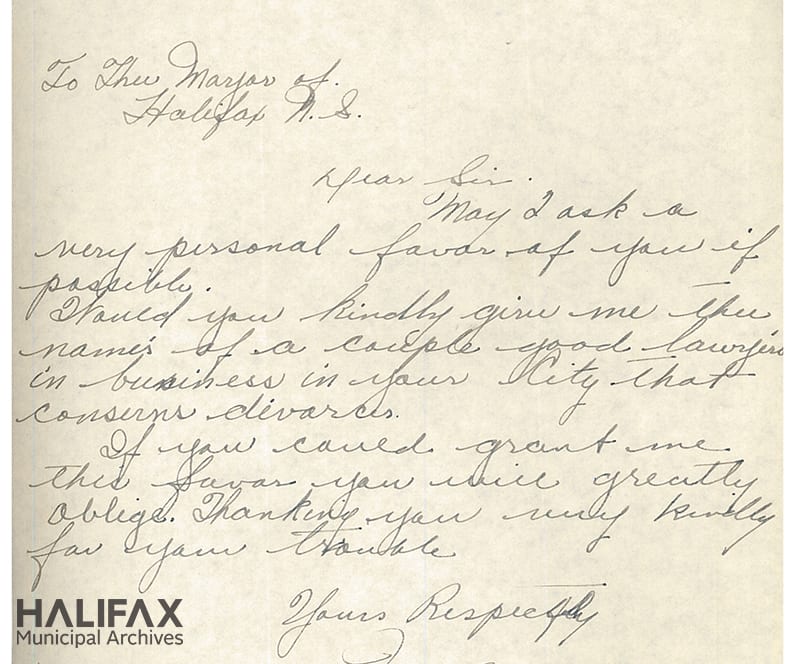 To The Mayor of.
Halifax N.S.
Dear Sir.
May I ask a
very personal favor of you if
possible.
Would you kindly give me the
names of a couple good lawyers
in business in your City that
conserns divorces.
If you could grant me
this favor you will greatly
oblige. Thanking you very kindly
for your trouble
Yours Respectfly
HALIFAX
Municipal Archives